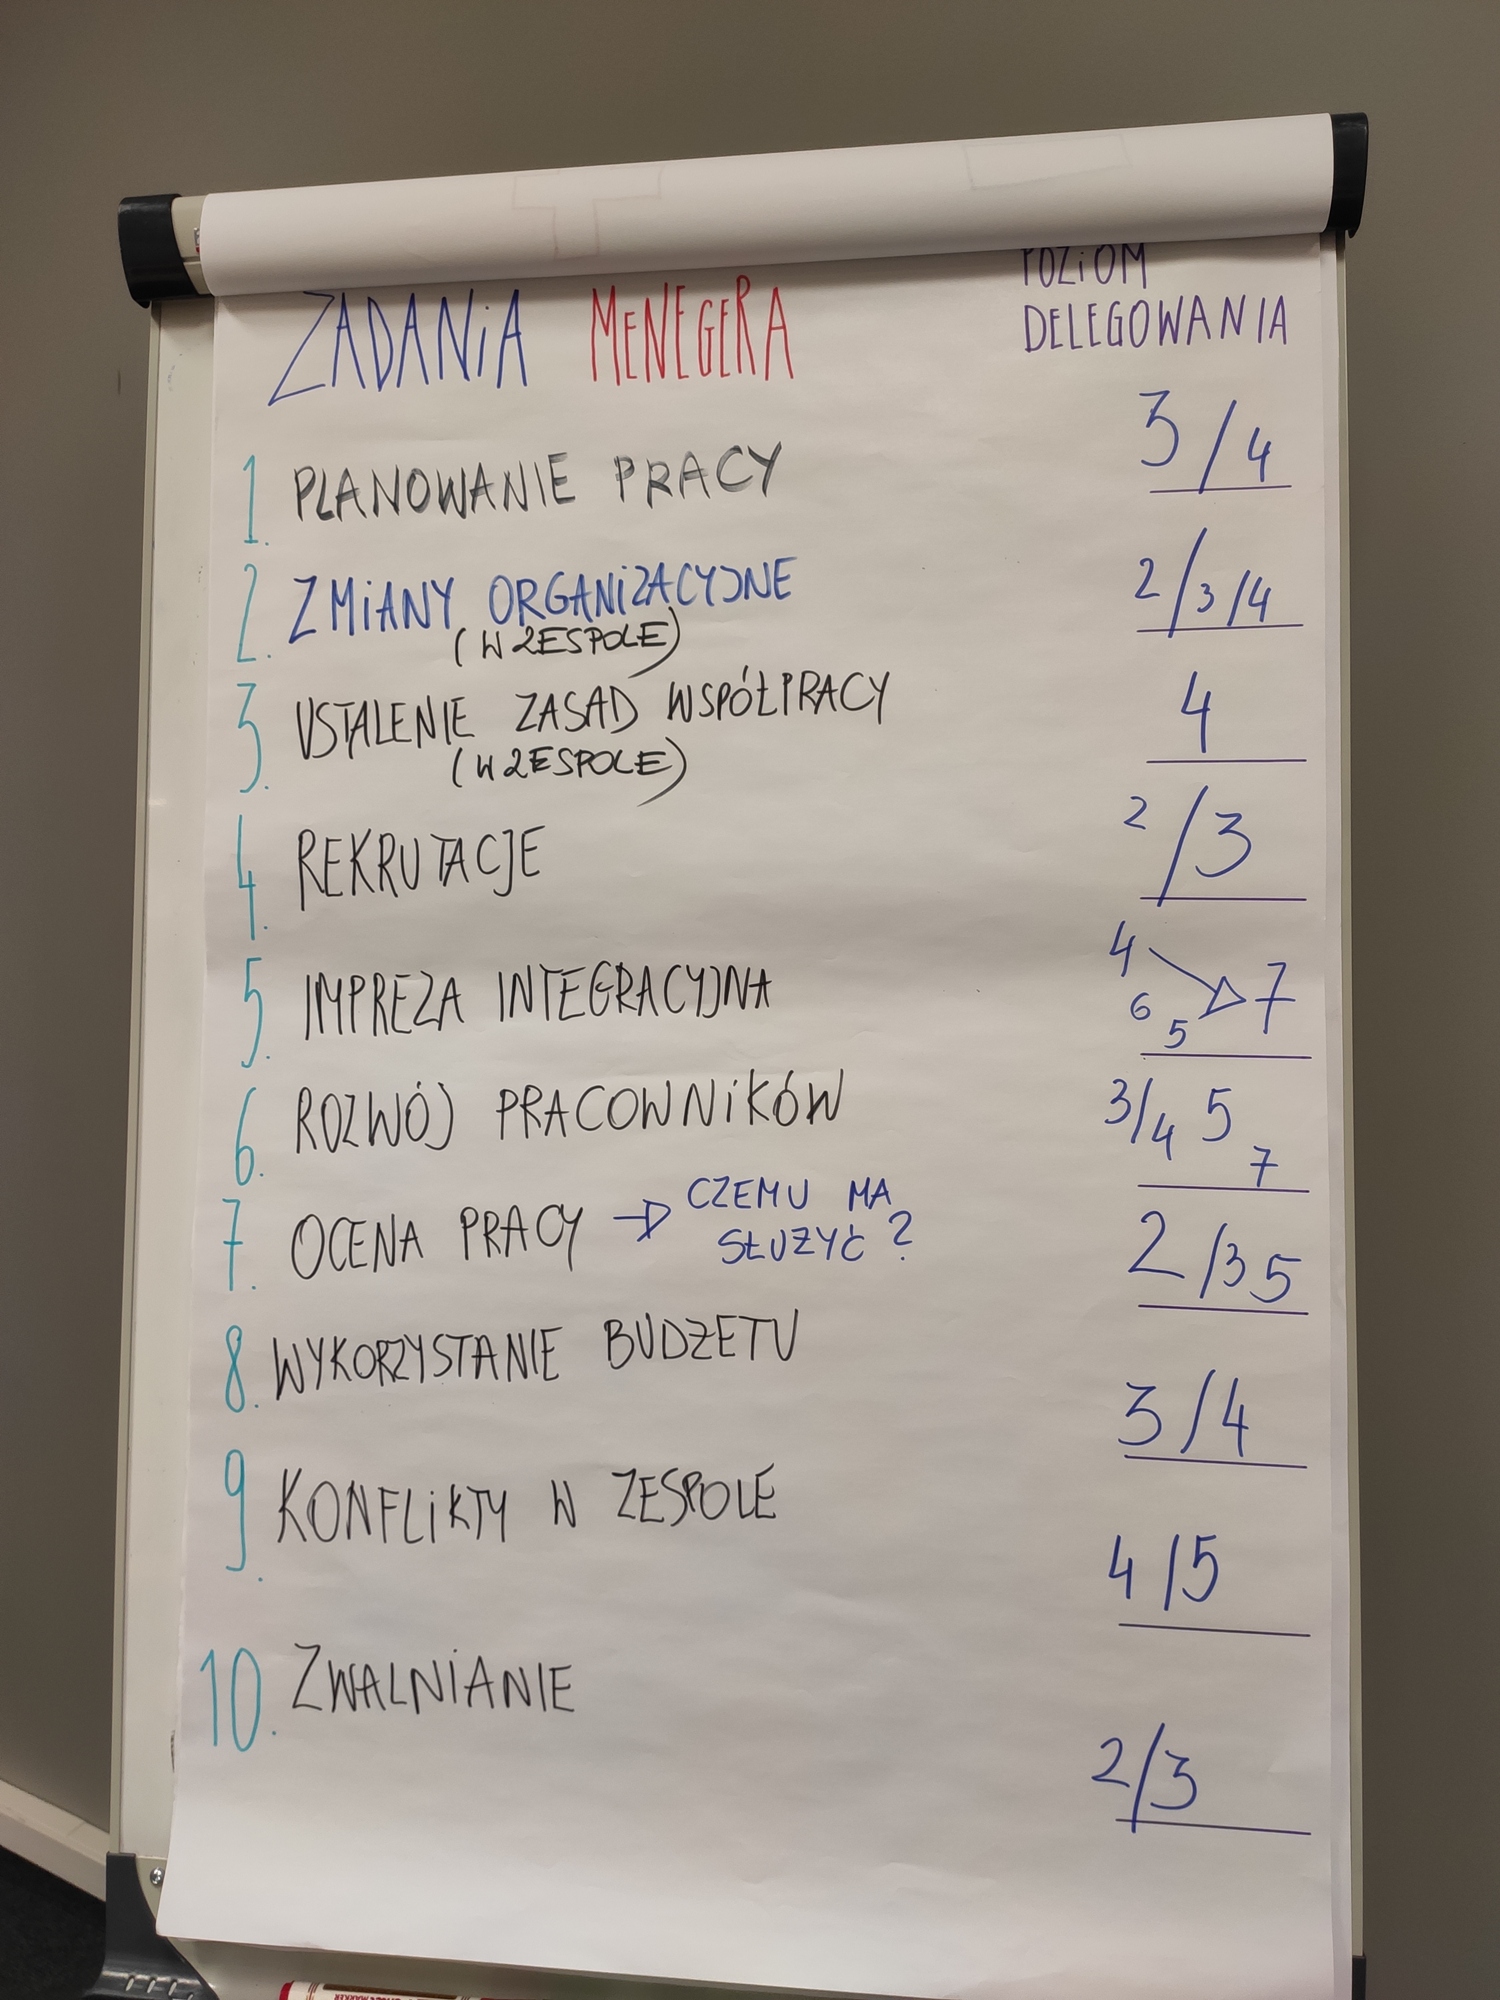 POZiOM
ZADANiA MENEGERA DELEGOWANIA
1. PLANOWANIE PRACY 3/4
2. ZMiANY ORGANiZACYJNE 2/3/4
(W ZESPOLE)
3. USTALENIE ZASAD WSPÓŁPRACY 4
(W ZESPOLE)
4. REKRUTACJE 2/3
5. IMPREZA INTEGRACYJNA 4 6 5 → 7
6. ROZWÓJ PRACOWNiKÓW 3/4 5 7
7. OCENA PRACY → CZEMU MA 2/3 5
SŁUŻYĆ?
8. WYKORZYSTANIE BUDŻETU 3/4
9. KONFLiKTY W ZESPOLE 4/5
10. ZWALNiANIE 2/3